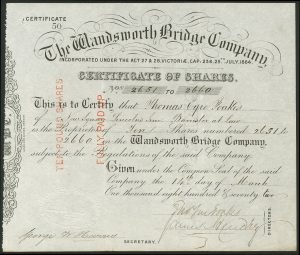 CERTIFICATE
50
The Wandsworth Bridge Company,
INCORPORATED UNDER THE ACT 27 & 28, VICTORIÆ, CAP: 238, 25TH JULY, 1864.
CERTIFICATE OF SHARES.
NOS 2651 TO 2660
This is to Certify that Thomas Eyre Foakes
of Lincolns Inn Barrister at law
is the Proprietor of Ten Shares numbered 2651 to
2660 in the Wandsworth Bridge Company,
subject to the Regulations of the said Company.
Given under the Common Seal of the said
Company the 14th day of March
One thousand eight hundred & Seventy two
DIRECTORS.
SECRETARY.
TEN POUND SHARES
FULLY PAID UP